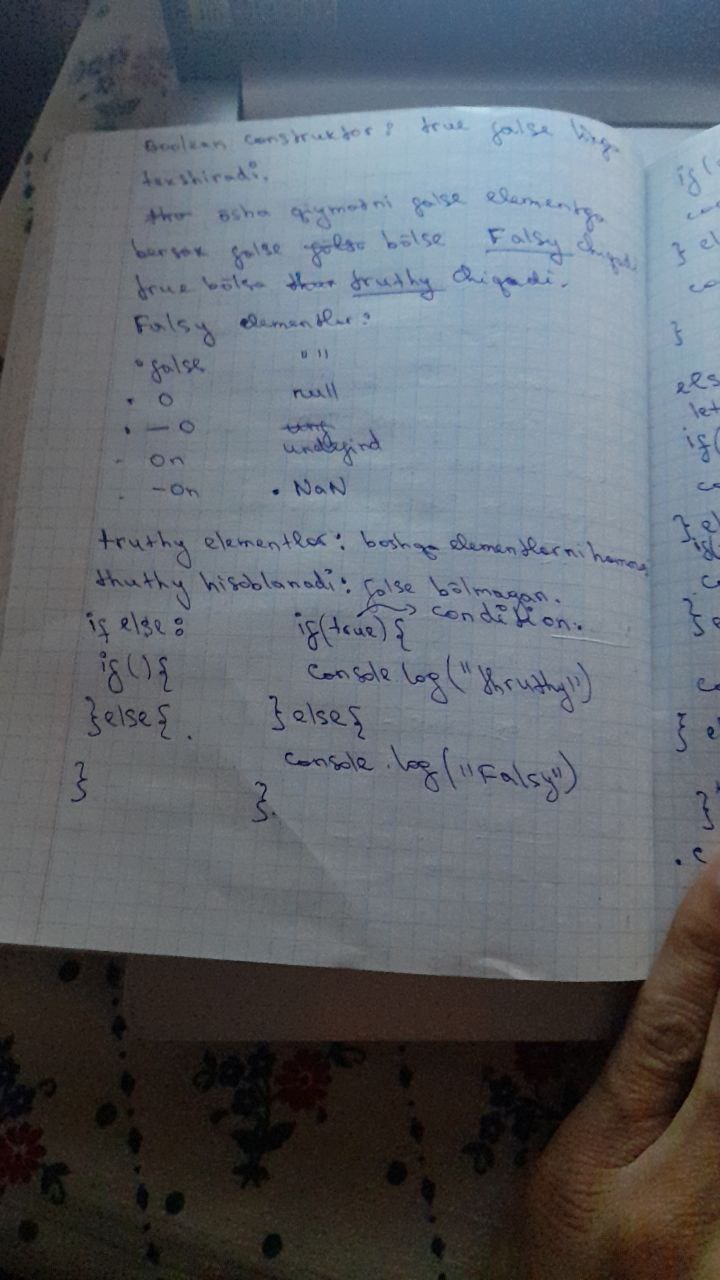 Boolean construktor: true false
tekshiradi.
osha qiymatni false elementga
bersak false bölse Falsy chiqadi
true bölsa truthy chiqadi.
Falsy elementlar:
• false " "
• 0 null
• -0
undefind
• 0n
• -0n • NaN
truthy elementlar: boshqa elementlarni hamma
thuthy hisoblanadi: false bölmagan.
if else: if(true){ → condition.
if(){ console log("thruthy")
}else{ . }else{
console.log("Falsy")
} }.
if(
co
} el
co
}
els
let
if(
co
} el
if(
co
} e
co
} e
}
.c